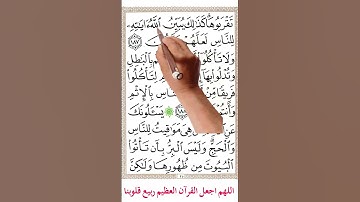 تَقْرَبُوهَا كَذَٰلِكَ يُبَيِّنُ ٱللَّهُ ءَايَٰتِهِۦ
لِلنَّاسِ لَعَلَّهُمْ ١٨٧
وَلَا تَأْكُلُوٓا۟ بِٱلْبَٰطِلِ
وَتُدْلُوا۟ بِهَآ لِتَأْكُلُوا۟
فَرِيقًا مِّنْ بِٱلْإِثْمِ
وَأَنتُمْ ١٨٨ يَسْـَٔلُونَكَ
عَنِ هِىَ مَوَٰقِيتُ لِلنَّاسِ
وَٱلْحَجِّ وَلَيْسَ ٱلْبِرُّ بِأَن تَأْتُوا۟
ٱلْبُيُوتَ مِن ظُهُورِهَا وَلَٰكِنَّ
اللهم اجعل القرآن العظيم ربيع قلوبنا